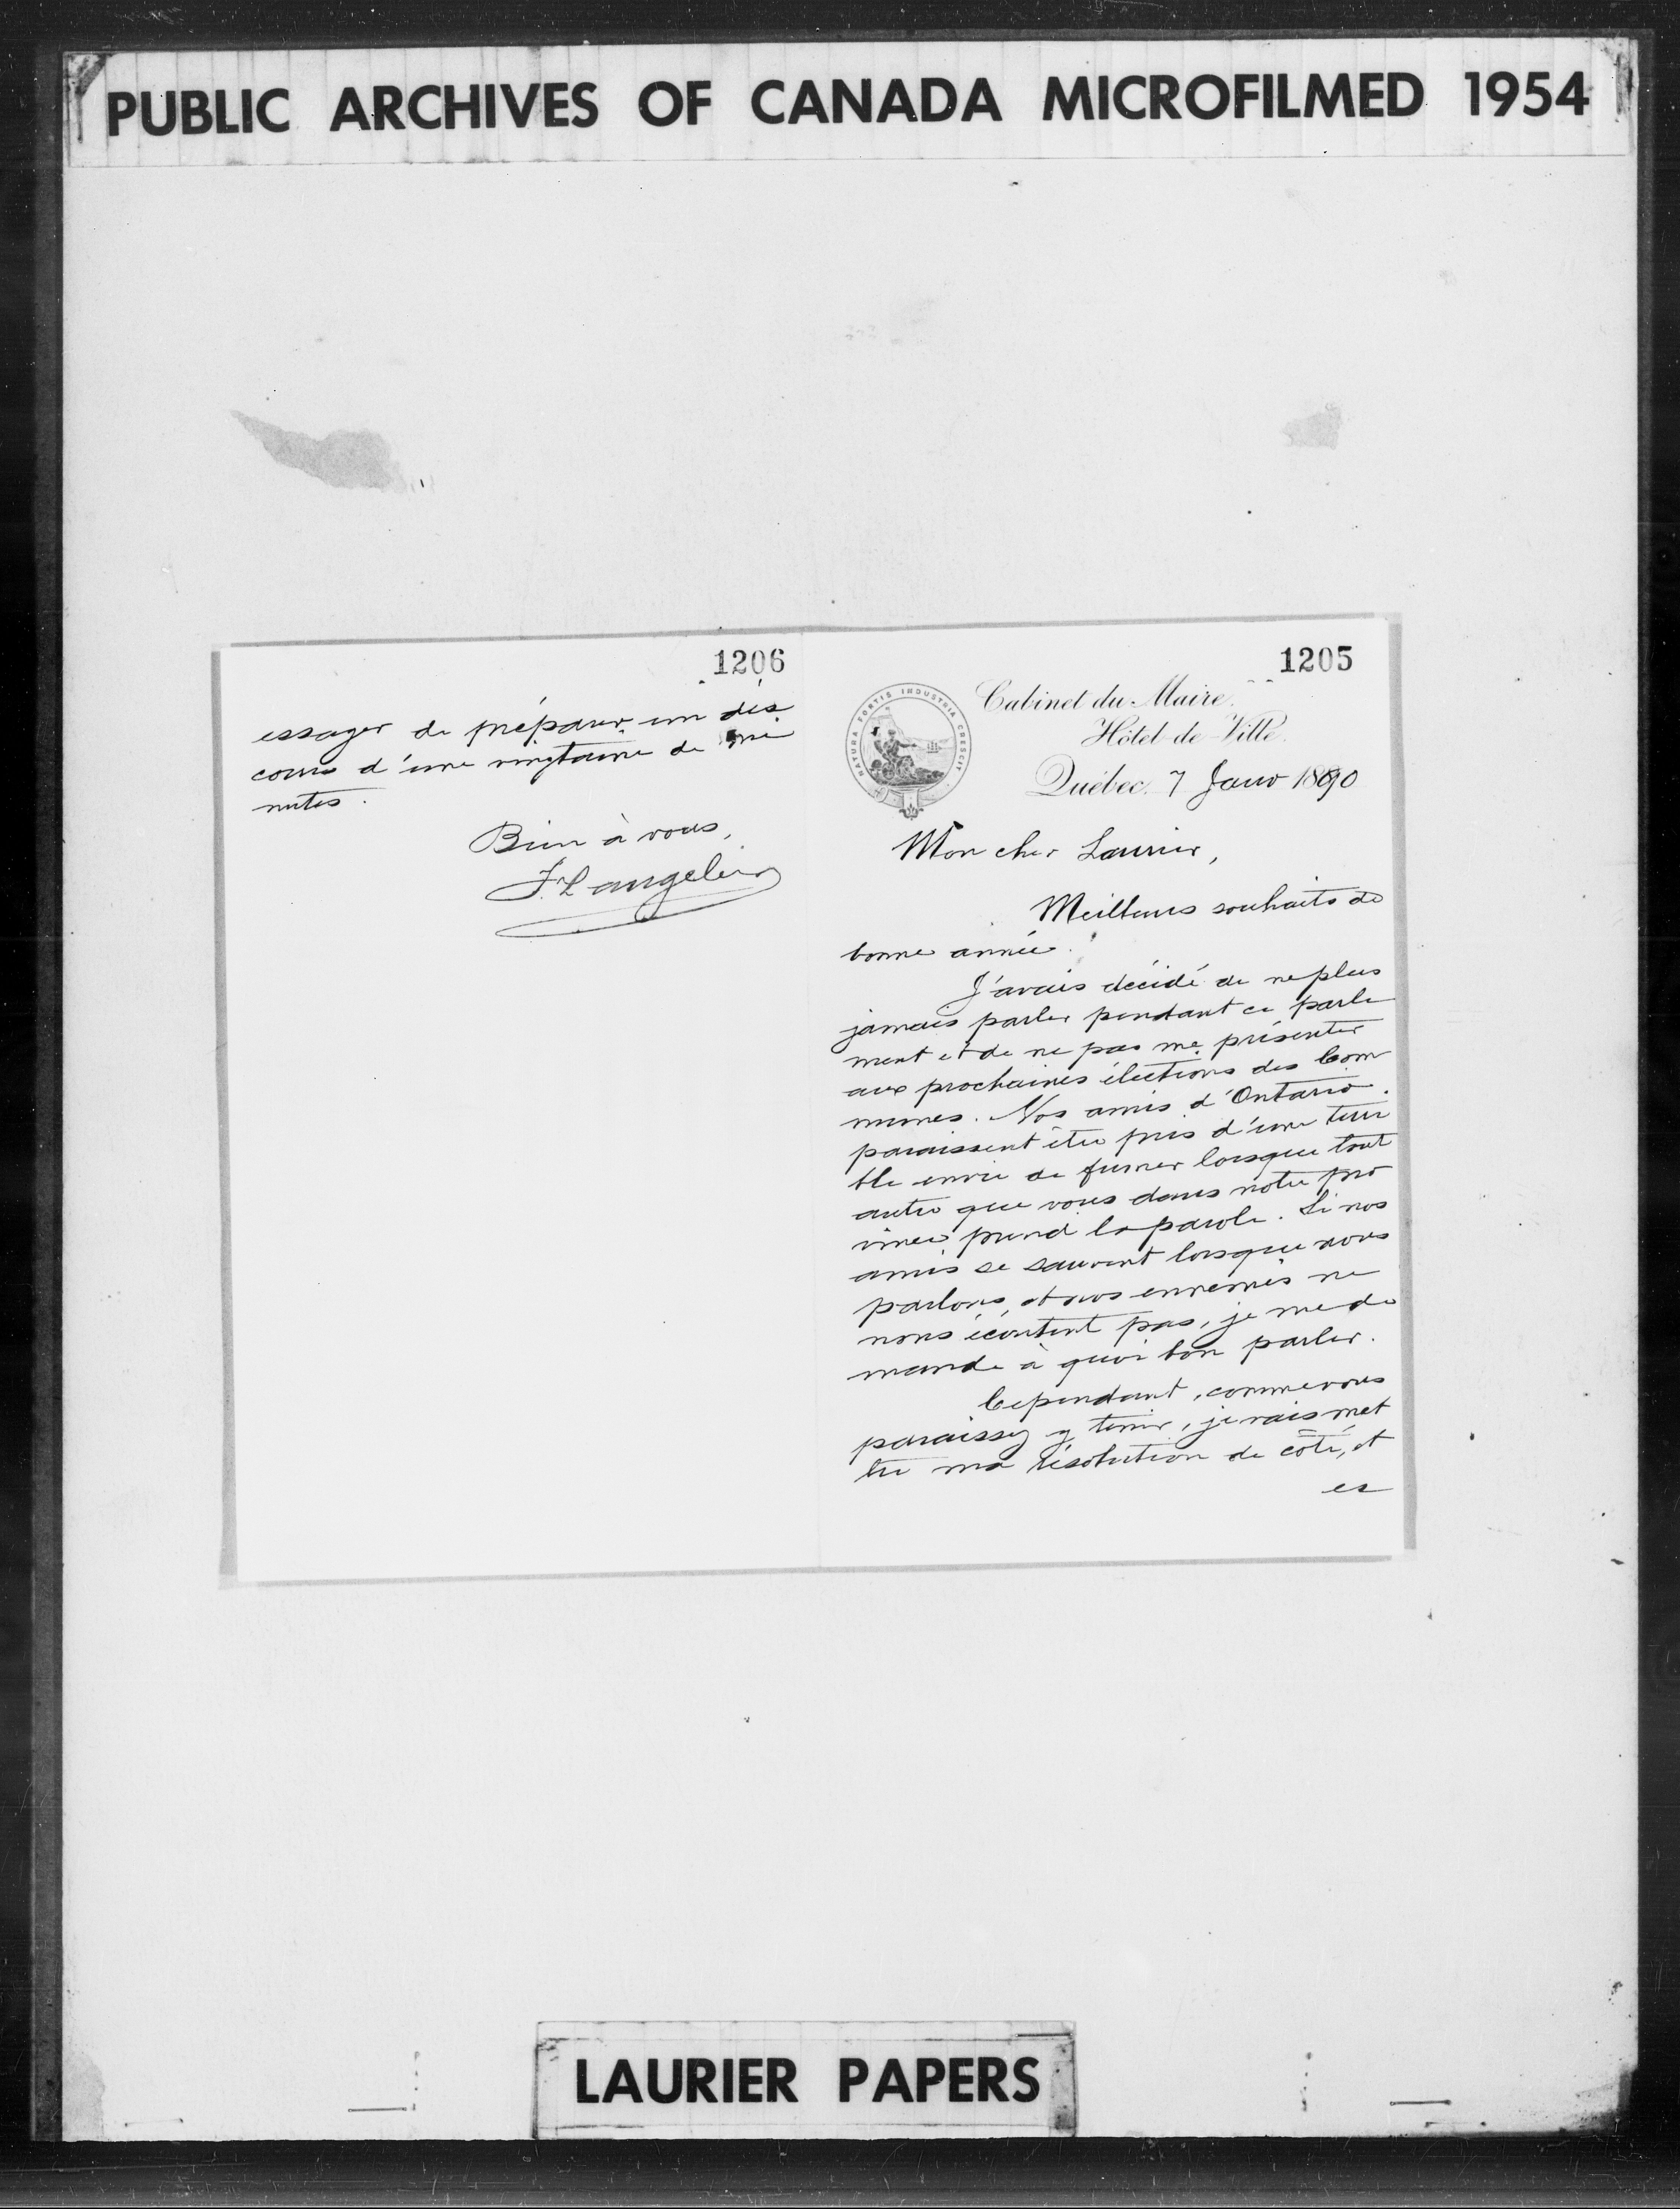 PUBLIC ARCHIVES OF CANADA MICROFILMED 1954
1205
NATURA FORTIS INDUSTRIA CRESCIT
Cabinet du Maire.
Hôtel-de-Ville.
Québec, 7 Janv 1890
Mon cher Laurier,
Meilleurs souhaits de
bonne année.
J'avais décidé de ne plus
jamais parler pendant ce parle
ment et de ne pas me présenter
aux prochaines élections des Com
munes. Nos amis d'Ontario
paraissent être pris d'une terri
ble envie de fumer lorsque tout
autre que vous dans notre pro
vince prend la parole. Si nos
amis se sauvent lorsque nous
parlons, et nos ennemis ne
nous écoutent pas, je me de
mande à quoi bon parler.
Cependant, comme vous
paraissez y tenir, je vais met
tre ma résolution de côté, et
es
1206
essayer de préparer un dis
cours d'une vingtaine de mi
nutes.
Bien à vous,
F. Langelier
LAURIER PAPERS